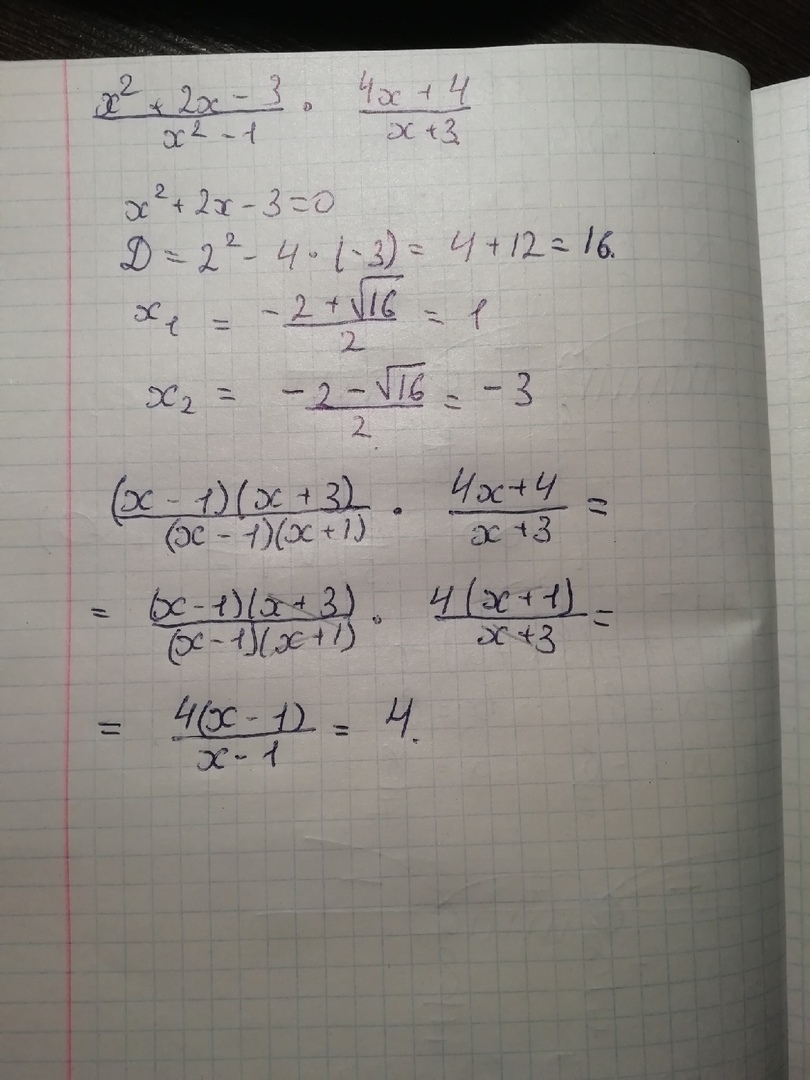 (x² + 2x - 3)/(x² - 1) · (4x + 4)/(x + 3)
x² + 2x - 3 = 0
D = 2² - 4 · (-3) = 4 + 12 = 16.
x₁ = (-2 + √16)/2 = 1
x₂ = (-2 - √16)/2 = -3
((x - 1)(x + 3))/((x - 1)(x + 1)) · (4x + 4)/(x + 3) =
= ((x - 1)(x + 3))/((x - 1)(x + 1)) · (4(x + 1))/(x + 3) =
= (4(x - 1))/(x - 1) = 4.